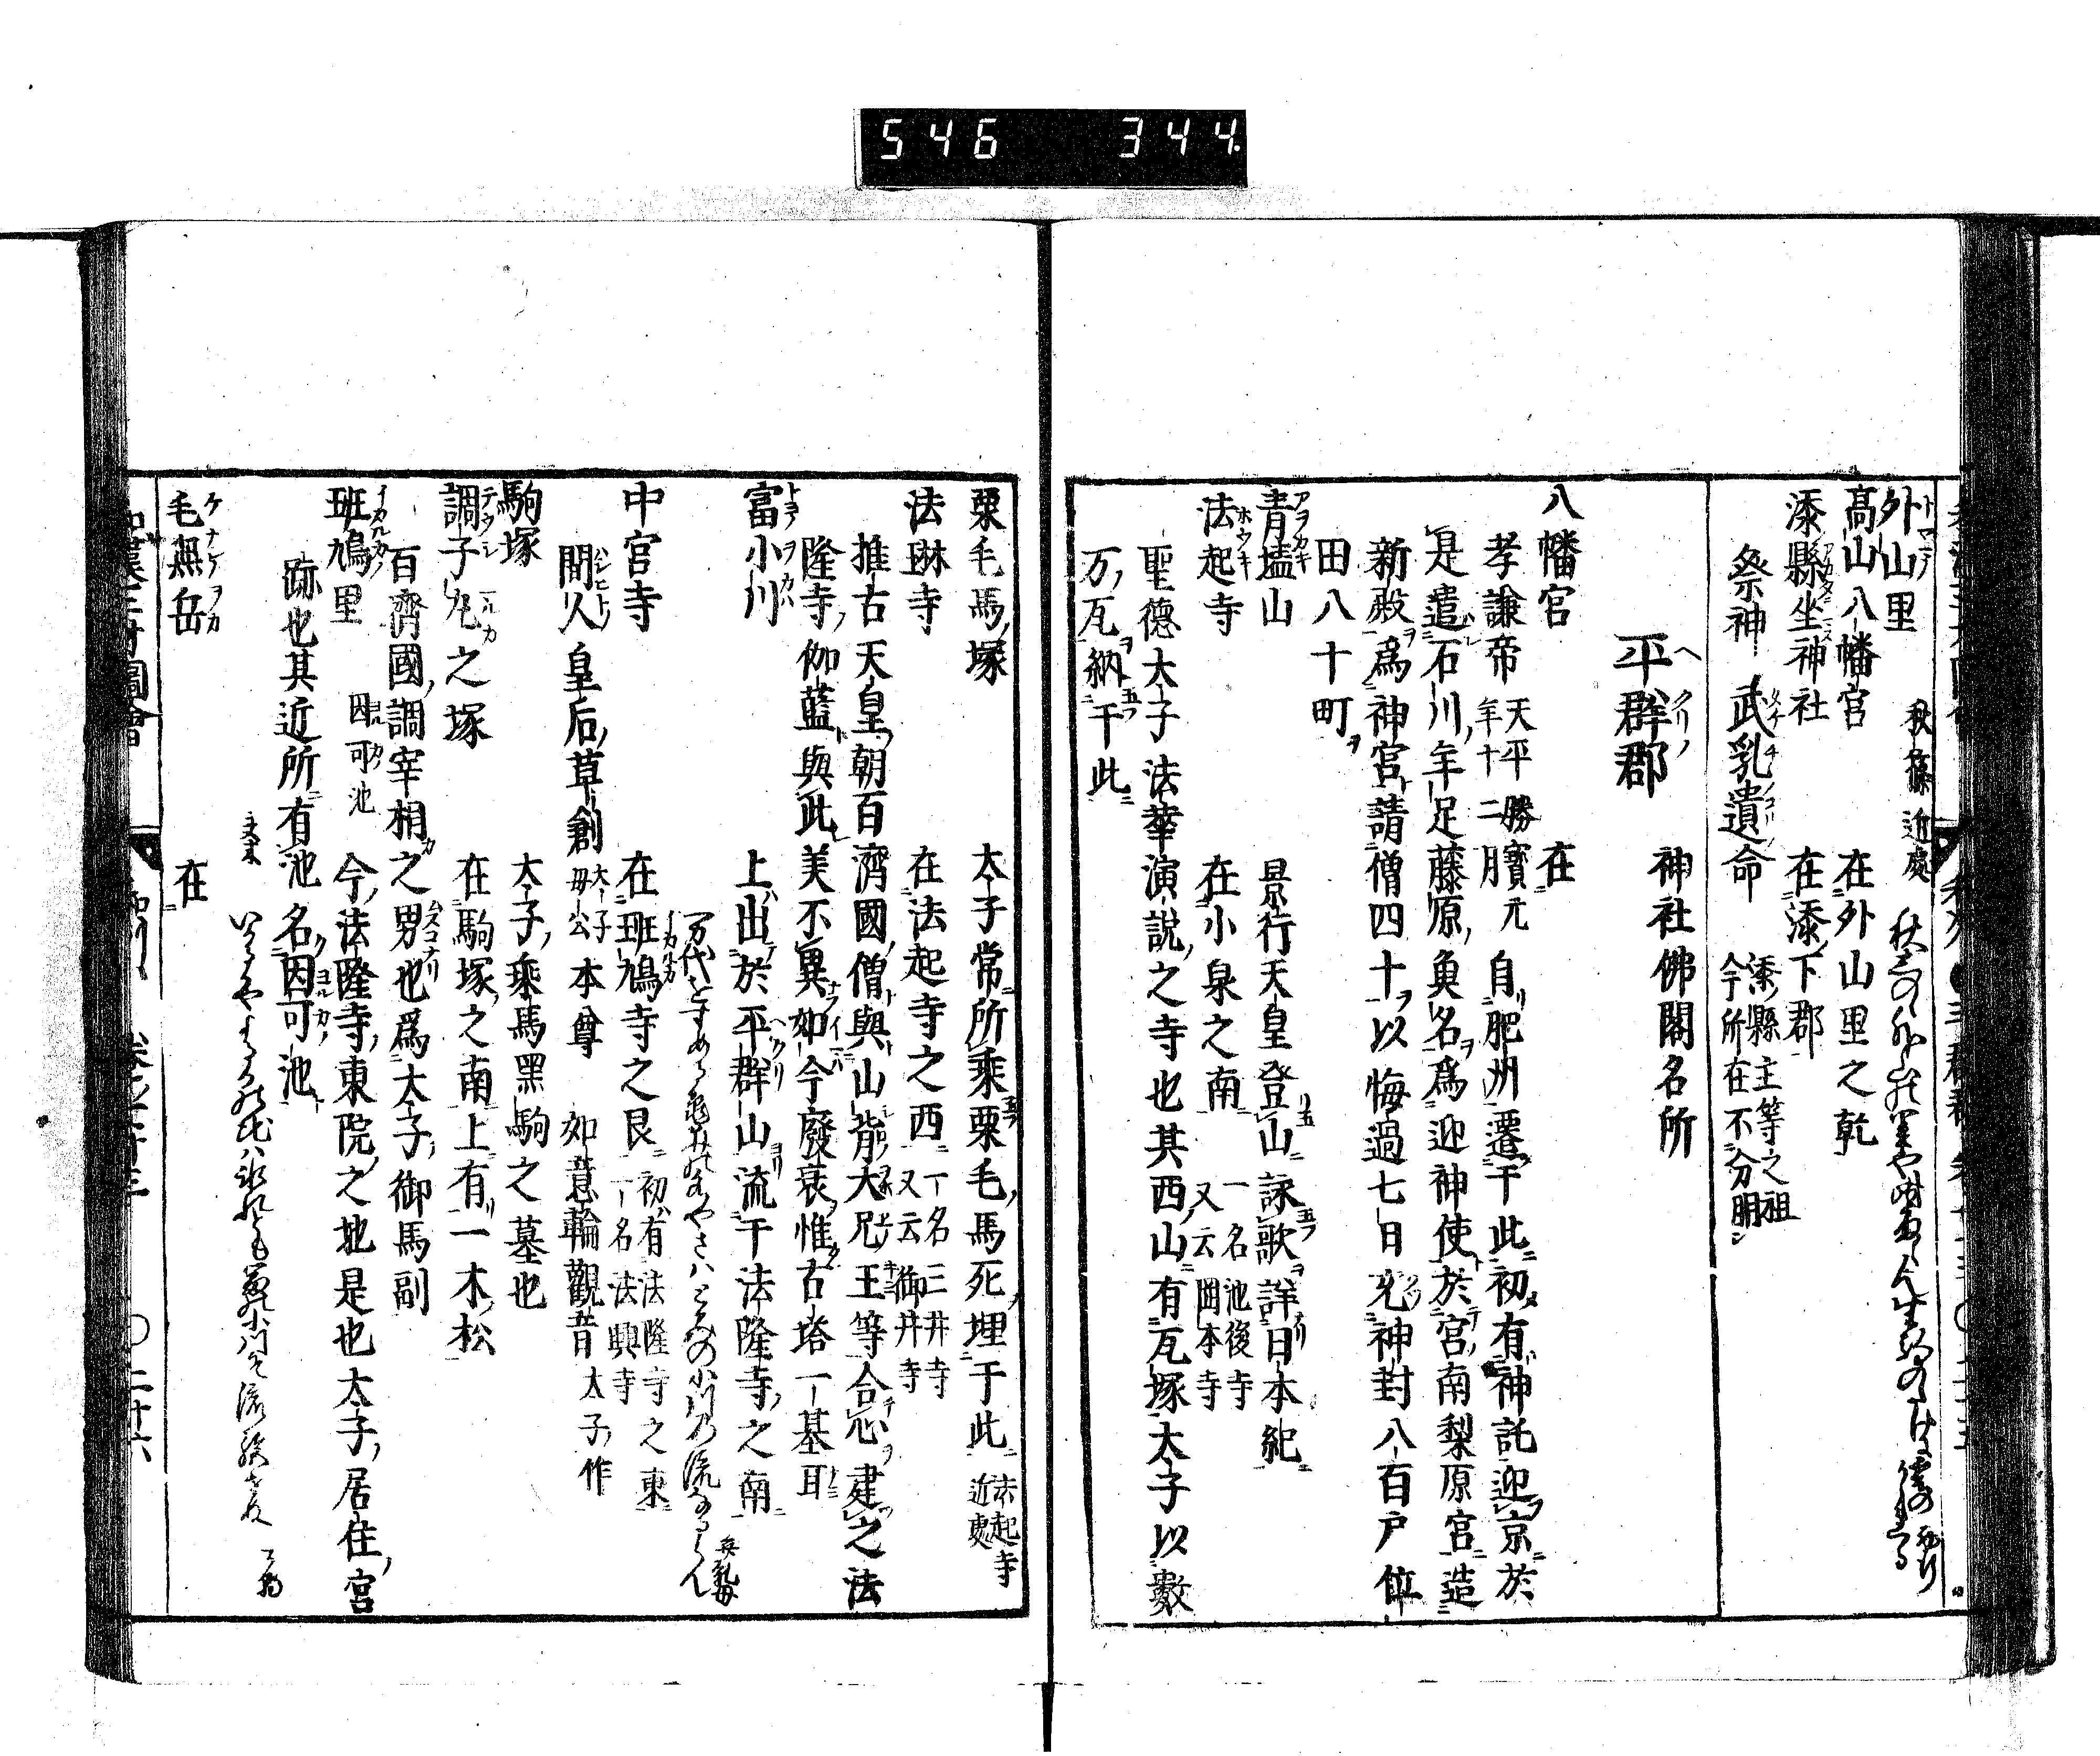 546 344
外山里 秋篠近處
髙山八幡宮 在外山里之乾
添縣坐神社 在添下郡 添縣主等之祖今所在不分明
祭神 武乳遺命
平群郡 神社佛閣名所
八幡宮 在
孝謙帝天平勝寳元年十二月 自肥州遷于此初有神託迎京於
是遣石川年足藤原魚名爲迎神使於宮南梨原宮造
新殿爲神宮請僧四十以悔過七日充神封八百戸位
田八十町
青墻山 景行天皇登山詠歌詳日本紀
法起寺 在小泉之南 一名池後寺又云岡本寺
聖德太子法華演說之寺也其西山有瓦塚太子以數
万瓦納于此
栗毛馬塚 太子常所乘栗毛馬死埋于此 法起寺近處
法琳寺 在法起寺之西 一名三井寺又云御井寺
推古天皇朝百濟國僧與山背大兄王等合心建之法
隆寺伽藍與此美不異如今廢衰惟古塔一基耳
富小川 上出於平群山流于法隆寺之南
中宮寺 在班鳩寺之艮 初有法隆寺之東一名法興寺
間人皇后草創 太子母公 本尊 如意輪觀音 太子作
駒塚 太子乘馬黑駒之墓也
調子丸之塚 在駒塚之南上有一木松
百濟國調宰相之男也爲太子御馬副
班鳩里 因可池 今法隆寺東院之地是也太子居住宮
跡也其近所有池名因可池
毛無岳 在